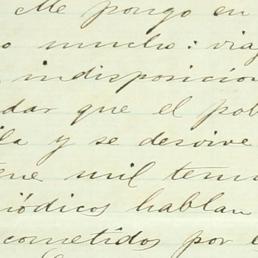 Me pongo en
o mucho: viaj
indisposicion
dar que el pob
la y se desvive
ene mil temo
iódicos hablan
cometidos por e